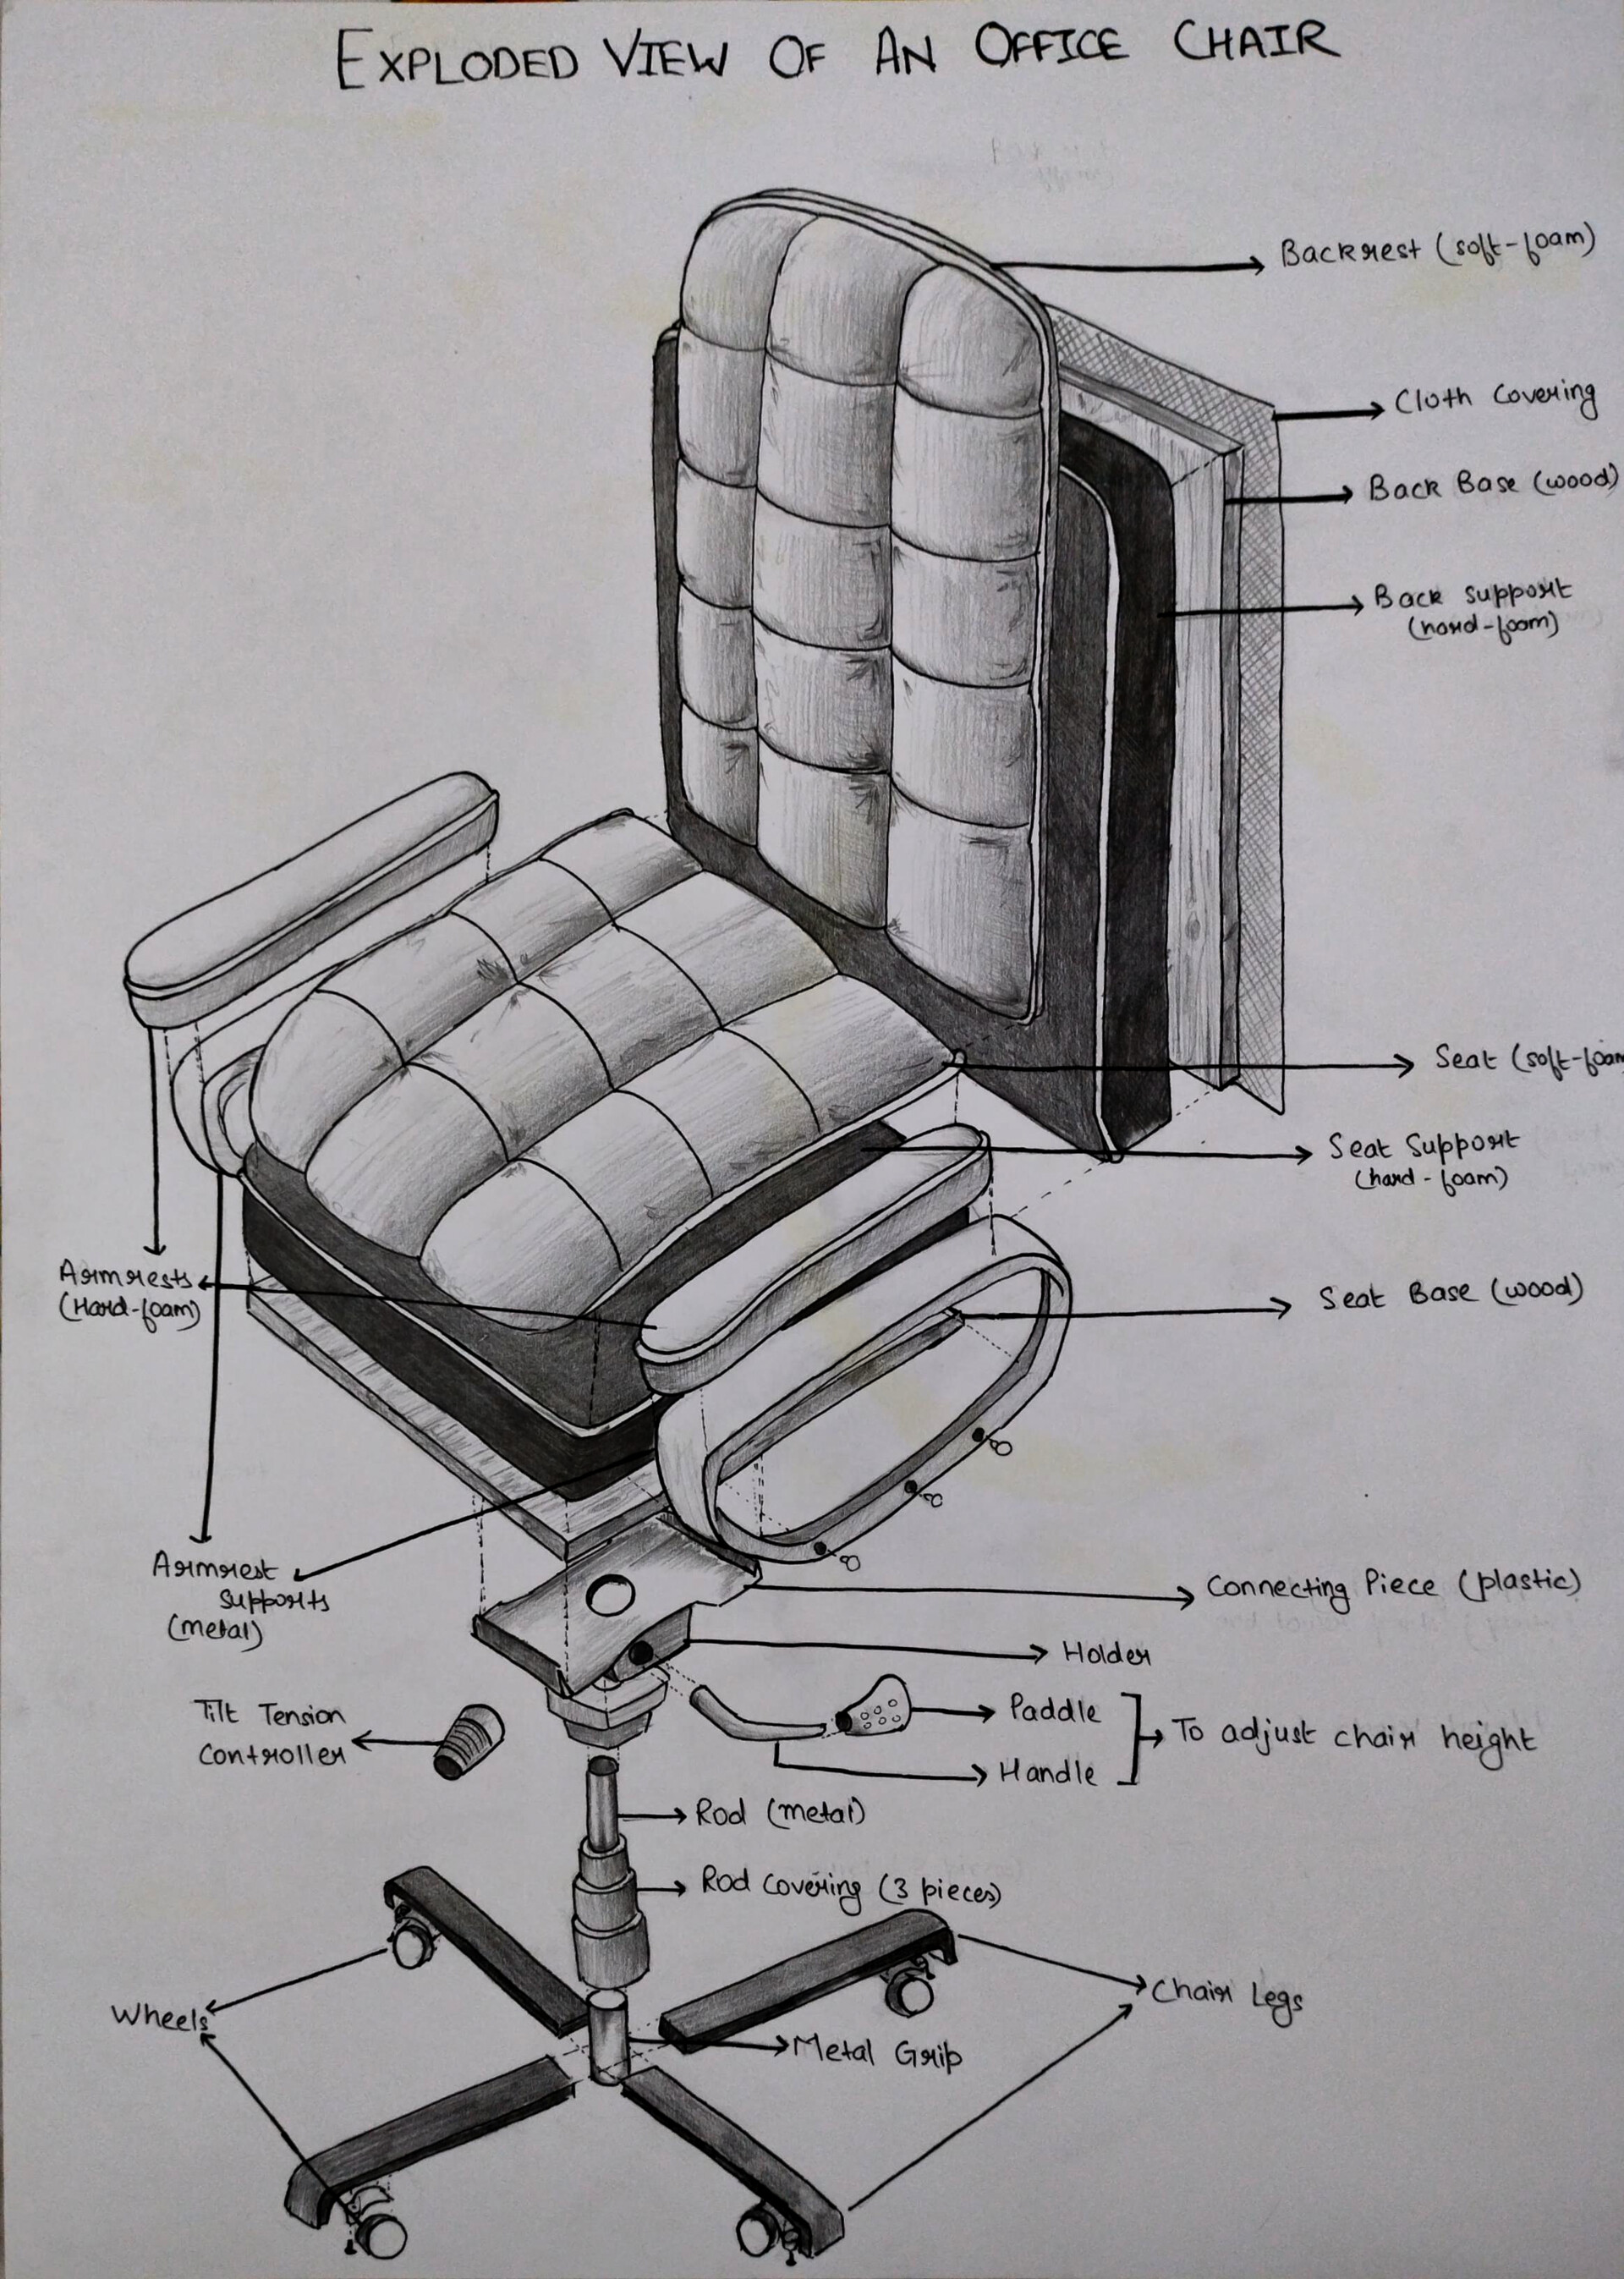 EXPLODED VIEW OF AN OFFICE CHAIR
Backrest (soft-foam)
Cloth Covering
Back Base (wood)
Back support
(hard-foam)
Seat (soft-foam
Seat Support
(hard-foam)
Armrests
(Hard-foam)
Seat Base (wood)
Armrest
supports
(metal)
Connecting Piece (plastic)
Holder
Tilt Tension
Controller
Paddle
Handle
To adjust chair height
Rod (metal)
Rod Covering (3 pieces)
Wheels
Chair Legs
Metal Grip